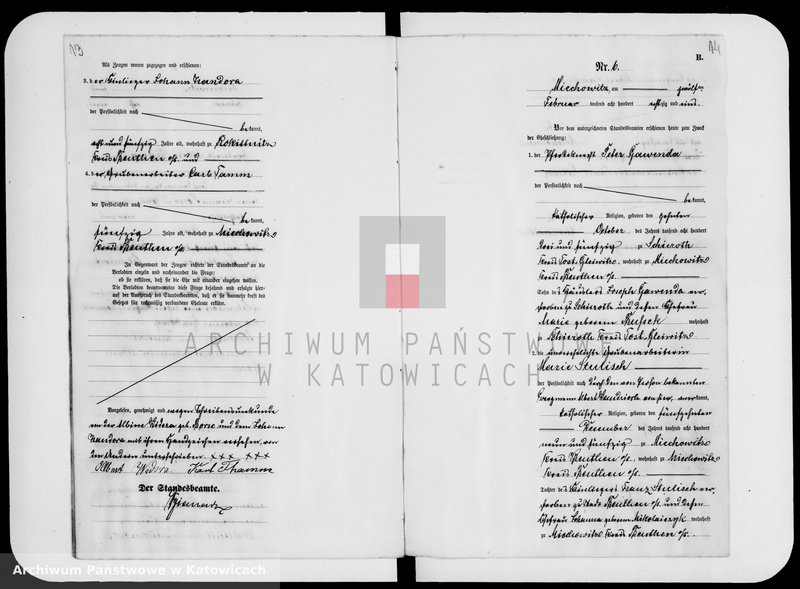 13
Als Zeugen waren zugezogen und erschienen:
3. der Einlieger Johann Kandora
der Persönlichkeit nach
bekannt,
acht und fünfzig Jahre alt, wohnhaft zu Rokittnitz
Kreis Beuthen o/s. und
4. der Grubenarbeiter Carl Tamm
der Persönlichkeit nach
bekannt,
fünfzig Jahre alt, wohnhaft zu Miechowitz
Kreis Beuthen o/s.
In Gegenwart der Zeugen richtete der Standesbeamte an die
Verlobten einzeln und nacheinander die Frage:
ob sie erklären, daß sie die Ehe mit einander eingehen wollen.
Die Verlobten beantworteten diese Frage bejahend und erfolgte hier-
auf der Ausspruch des Standesbeamten, daß er sie nunmehr kraft des
Gesetzes für rechtmäßig verbundene Eheleute erkläre.
Vorgelesen, genehmigt und wegen Schreibensunkunde
von der Albine Widera geb. und dem Johann
Kandora mit ihren Handzeichen versehen, von
den Anderen unterschrieben. +++ +++
Albert Widera Karl Thamm
Der Standesbeamte.
14
B.
Nr. 6.
Miechowitz, am zwölften
Februar tausend acht hundert achtzig und eins.
Vor dem unterzeichneten Standesbeamten erschienen heute zum Zweck
der Eheschließung:
1. der Pferdeknecht Peter Gawenda
der Persönlichkeit nach
bekannt,
katholischer Religion, geboren den zehnten
October des Jahres tausend acht hundert
drei und fünfzig zu Schieroth
Kreis Tost-Gleiwitz, wohnhaft zu Miechowitz
Kreis Beuthen o/s.
Sohn des Häusler Joseph Gawenda ver-
storben zu Schieroth und dessen Ehefrau
Marie geborenen wohnhaft
zu Schieroth Kreis Tost-Gleiwitz
2. die unverehelichte Grubenarbeiterin
Marie Stulisch
der Persönlichkeit nach durch den von Person bekannten
anerkannt,
katholischer Religion, geboren den fünfzehnten
Dezember des Jahres tausend acht hundert
neun und fünfzig zu Miechowitz
Kreis Beuthen o/s. wohnhaft zu Miechowitz
Kreis Beuthen o/s.
Tochter des Einliegers Franz Stulisch ver-
storben zu Stadt Beuthen o/s. und dessen
Ehefrau Johanna geborenen Mikolaiczyk wohnhaft
zu Miechowitz Kreis Beuthen o/s.
ARCHIWUM PAŃSTWOWE
W KATOWICACH
Archiwum Państwowe w Katowicach